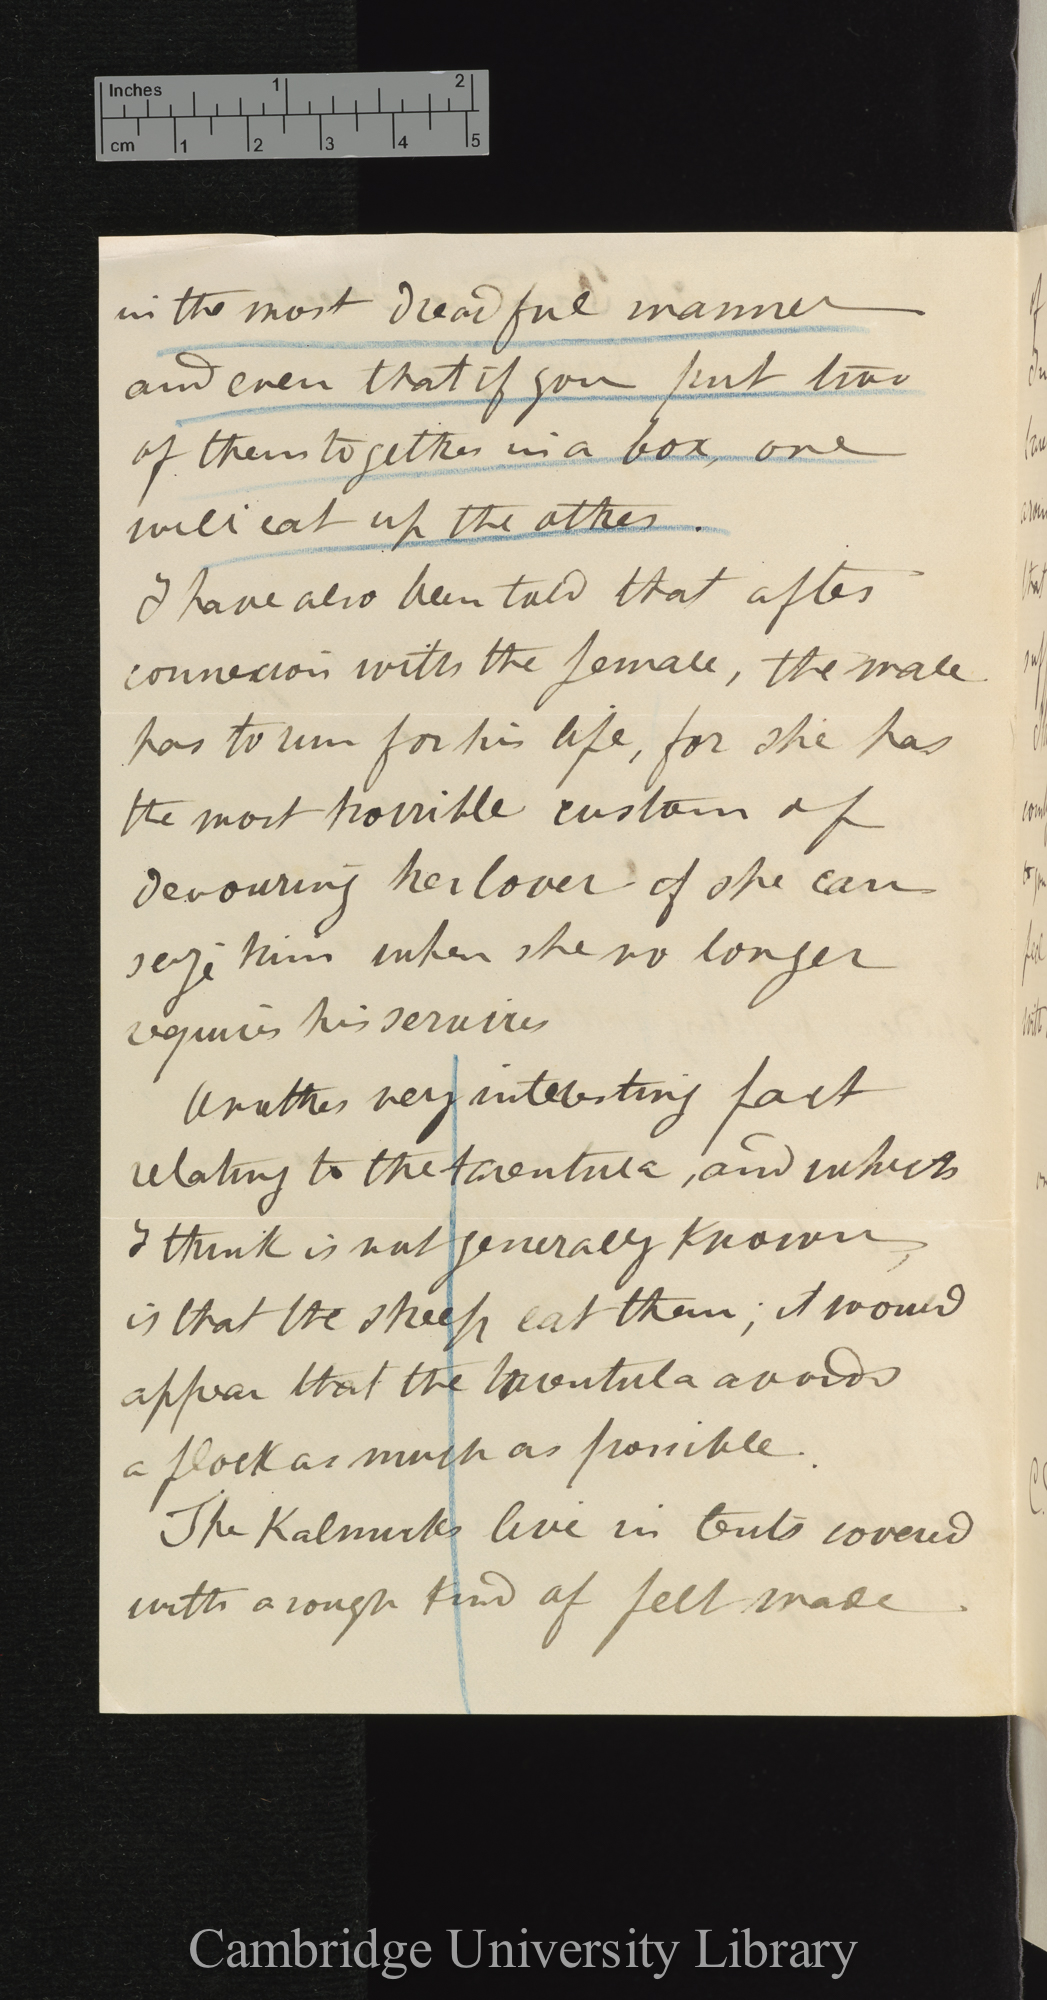 Inches 1 2
cm 1 2 3 4 5
in the most dreadful manner
and even that if you put two
of them together in a box, one
will eat up the other.
I have also been told that after
connexion with the female, the male
has to run for his life, for she has
the most horrible custom of
devouring her lover if she can
seize him when she no longer
requires his services
Another very interesting fact
relating to the tarentula, and which
I think is not generally known,
is that the sheep eat them; it would
appear that the tarentula avoids
a flock as much as possible.
The Kalmucks live in tents covered
with a rough kind of felt made
Cambridge University Library